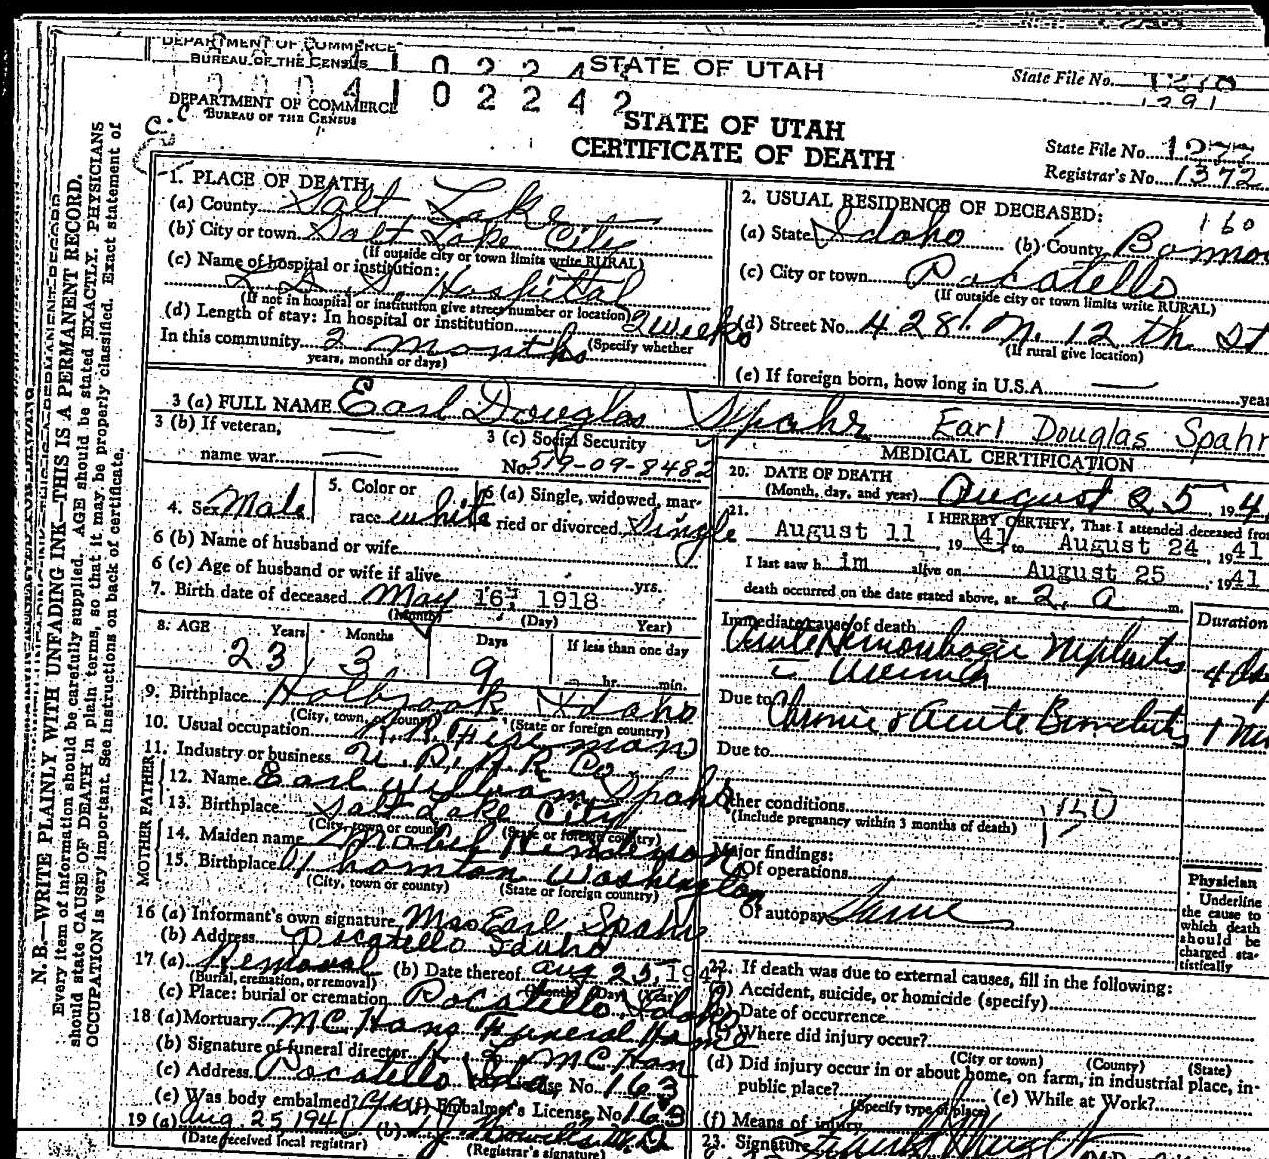 DEPARTMENT OF COMMERCE
BUREAU OF THE CENSUS
STATE OF UTAH
State File No.
1291
41 02242
DEPARTMENT OF COMMERCE
BUREAU OF THE CENSUS
STATE OF UTAH
CERTIFICATE OF DEATH
State File No. 1277
Registrar's No. 1372
N. B.—WRITE PLAINLY WITH UNFADING INK—THIS IS A PERMANENT RECORD.
Every item of information should be carefully supplied. AGE should be stated EXACTLY. PHYSICIANS
should state CAUSE OF DEATH in plain terms, so that it may be properly classified. Exact statement of
OCCUPATION is very important. See instructions on back of certificate.
1. PLACE OF DEATH
(a) County Salt Lake
(b) City or town Salt Lake City
(If outside city or town limits write RURAL)
(c) Name of hospital or institution:
L. D. S. Hospital
(If not in hospital or institution give street number or location)
(d) Length of stay: In hospital or institution 2 weeks
(Specify whether
In this community 2 months
years, months or days)
2. USUAL RESIDENCE OF DECEASED:
160
(a) State Idaho (b) County
(c) City or town Pocatello
(If outside city or town limits write RURAL)
(d) Street No. 428 N. 12 th St
(If rural give location)
(e) If foreign born, how long in U.S.A. — year
3 (a) FULL NAME Earl Douglas Spahr Earl Douglas Spahr
3 (b) If veteran,
name war
3 (c) Social Security
No. 519-09-8482
4. Sex Male
5. Color or
race white
6 (a) Single, widowed, mar-
ried or divorced Single
6 (b) Name of husband or wife
6 (c) Age of husband or wife if alive yrs.
7. Birth date of deceased May 16, 1918
(Month) (Day) Year)
8. AGE Years Months Days If less than one day
23 3 9 hr. min.
9. Birthplace Holbrook Idaho
(City, town, or county) (State or foreign country)
10. Usual occupation R. R. Fire man
11. Industry or business U. P. R. R. Co
FATHER
12. Name Earl William Spahr
13. Birthplace Salt Lake City
(City, town or county) (State or foreign country)
MOTHER
14. Maiden name Mabel
15. Birthplace Thornton Washington
(City, town or county) (State or foreign country)
16 (a) Informant's own signature Mrs Earl Spahr
(b) Address Pocatello Idaho
17 (a) Removal (b) Date thereof Aug 25, 194
(Burial, cremation, or removal) (Month) (Day) (Year)
(c) Place: burial or cremation Pocatello Idaho
18 (a) Mortuary McHans Funeral Home
(b) Signature of funeral director McHan
(c) Address Pocatello Ida License No. 163
(e) Was body embalmed? Yes (f) Embalmer's License No 163
19 (a) Aug. 25 1941 (b) M.D
(Date received local registrar) (Registrar's signature)
MEDICAL CERTIFICATION
20. DATE OF DEATH
(Month, day, and year) August 25, 194
21. I HEREBY CERTIFY, That I attended deceased from
August 11, 1941 to August 24, 1941
I last saw h im alive on August 25, 1941
death occurred on the date stated above, at 2. a m.
Immediate cause of death Duration
Acute Hemorrhagic Nephritis
Uremia
Due to Chronic & Acute Bronchitis
Due to
Other conditions
(Include pregnancy within 3 months of death)
Major findings:
Of operations
Of autopsy Same
Physician
Underline
the cause to
which death
should be
charged sta-
tistically
22. If death was due to external causes, fill in the following:
(a) Accident, suicide, or homicide (specify)
(b) Date of occurrence
(c) Where did injury occur?
(City or town) (County) (State)
(d) Did injury occur in or about home, on farm, in industrial place, in-
public place? (e) While at Work?
(Specify type of place)
(f) Means of injury
23. Signature